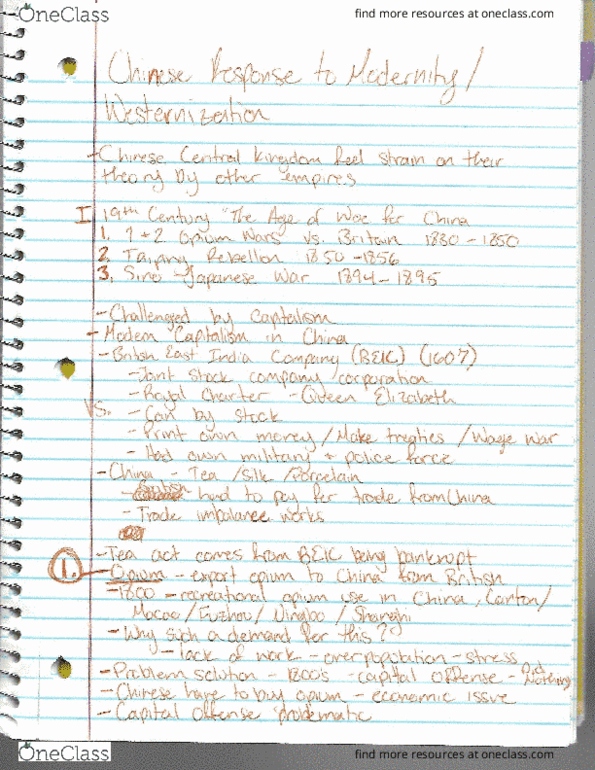 OneClass
find more resources at oneclass.com
Chinese Response to Modernity/
Westernization
-Chinese Central Kingdom feel strain on their
theory by other empires
I 19th Century "The Age of War for China
1. 1+2 Opium Wars vs. Britain 1830-1850
2. Taiping Rebellion 1850-1856
3. Sino-Japanese War 1894-1895
-Challenged by Capitalism
-Modern Capitalism in China
-British East India Company (BEIC) (1607)
-Joint stock company/corporation
-Royal Charter -Queen Elizabeth
vs. -Can by stock
-Print own money/Make treaties/Wage War
-Had own military + police force
-China -Tea/Silk/Porcelain
-British had to pay for trade from China
-Trade imbalance works
-Tea act comes from BEIC being bankrupt
1. -Opium -export opium to China from British
-1800 -recreational opium use in China, Canton/
Macao/Fuzhou/Ningbo/Shanghi
-Why such a demand for this?
-lack of work -overpopulation-stress
-Problem solution -1800's -capital offense - Did Nothing
-Chinese have to buy opium -economic issue
-Capital Offense problematic
OneClass
find more resources at oneclass.com